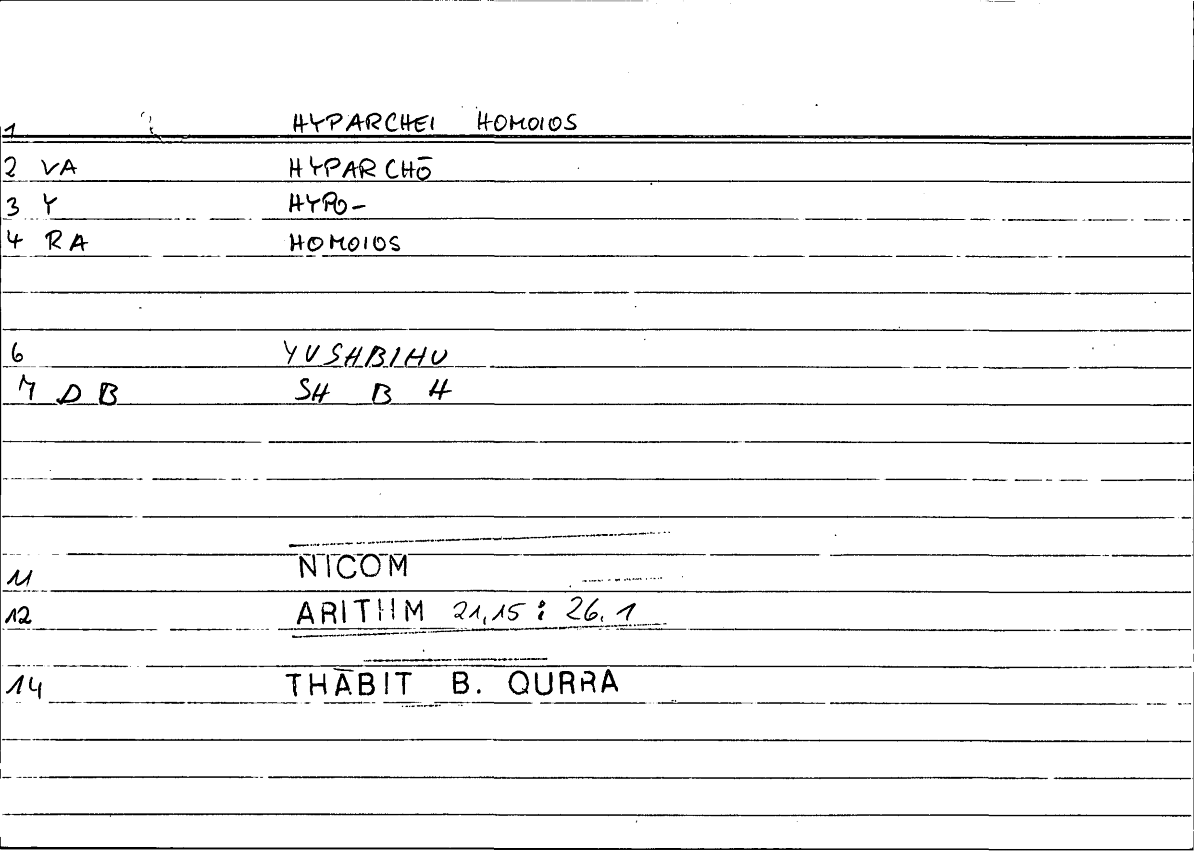 1 HYPARCHEI HOMOIOS
2 VA HYPARCHŌ
3 Y HYPO-
4 RA HOMOIOS
6 YUSHBIHU
7 D B SH B H
11 NICOM
12 ARITHM 21,15 : 26.1
14 THĀBIT B. QURRA